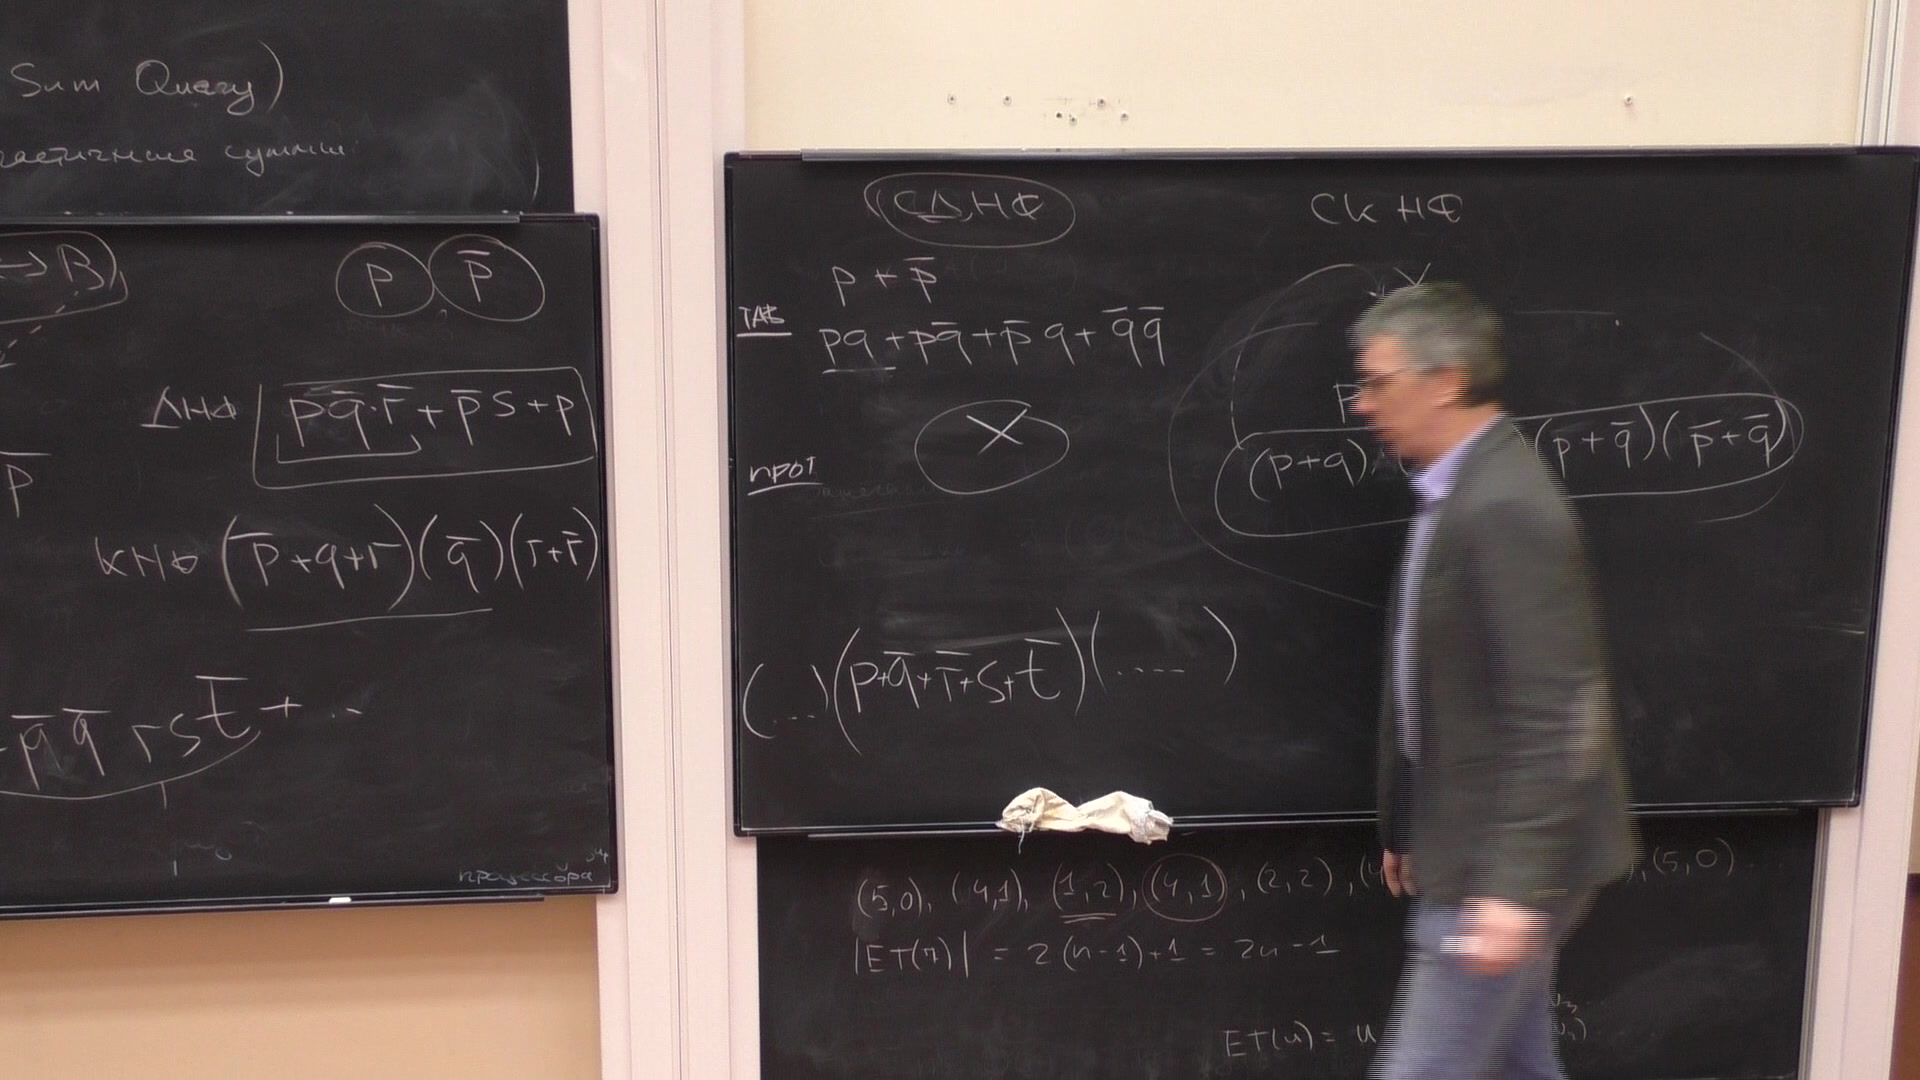 Sum Query)
частичные суммы
↔ B
p p̄
ДНФ p q̄·r̄ + p̄ s + p
p̄
КНФ (p̄+q+r)(q̄)(r+r̄)
p̄ q̄ r s t̄ + ..
процессора
СДНФ
СКНФ
p + p̄
ТАВ
pq + pq̄ + p̄ q + q̄ q̄
ПРОТ
(p+q) (p+q̄)(p̄+q̄)
(...)(p+q̄+r̄+s+t̄)(....)
(5,0), (4,1), (1,2), (4,1), (2,2), (4 ), (5,0) ...
|ET(n)| = 2(n-1)+1 = 2n-1
ET(u) = u